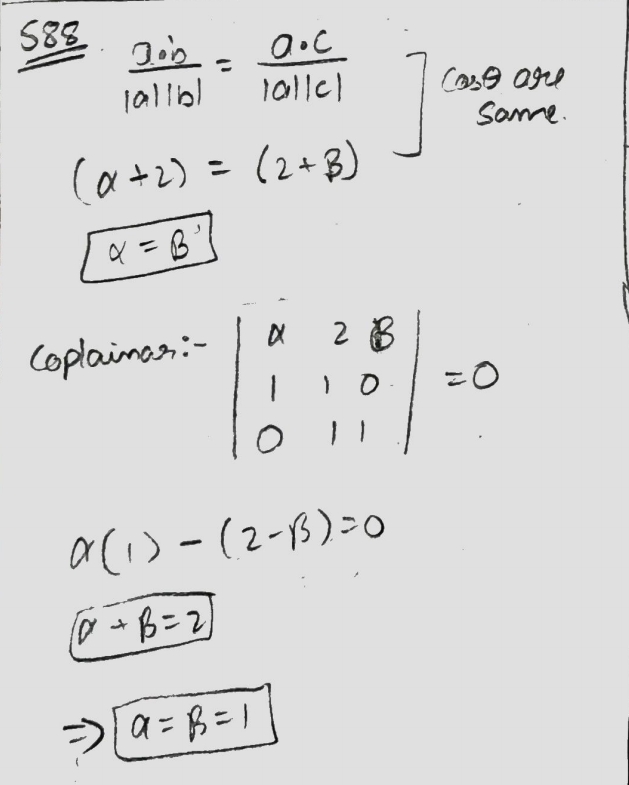 588
a·b / |a||b| = a·c / |a||c| ] Cosθ are same.
(α+2) = (2+β)
α = β
Coplainar:- | α 2 β |
| 1 1 0 | = 0
| 0 1 1 |
α(1) - (2-β)=0
α + β = 2
⇒ α = β = 1